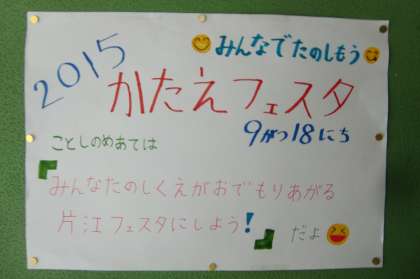 みんなでたのしもう
2015
かたえフェスタ
9がつ18にち
ことしのめあては
『みんなたのしくえがおでもりあがる
片江フェスタにしよう！』だよ